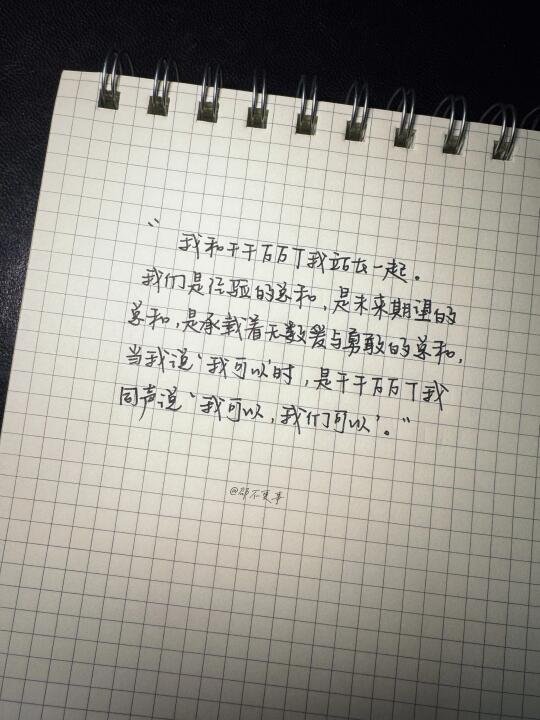 “我和千千万万个我站在一起。
我们是经验的总和，是未来期望的
总和，是承载着无数爱与勇敢的总和，
当我说‘我可以’时，是千千万万个我
同声说‘我可以，我们可以’。”